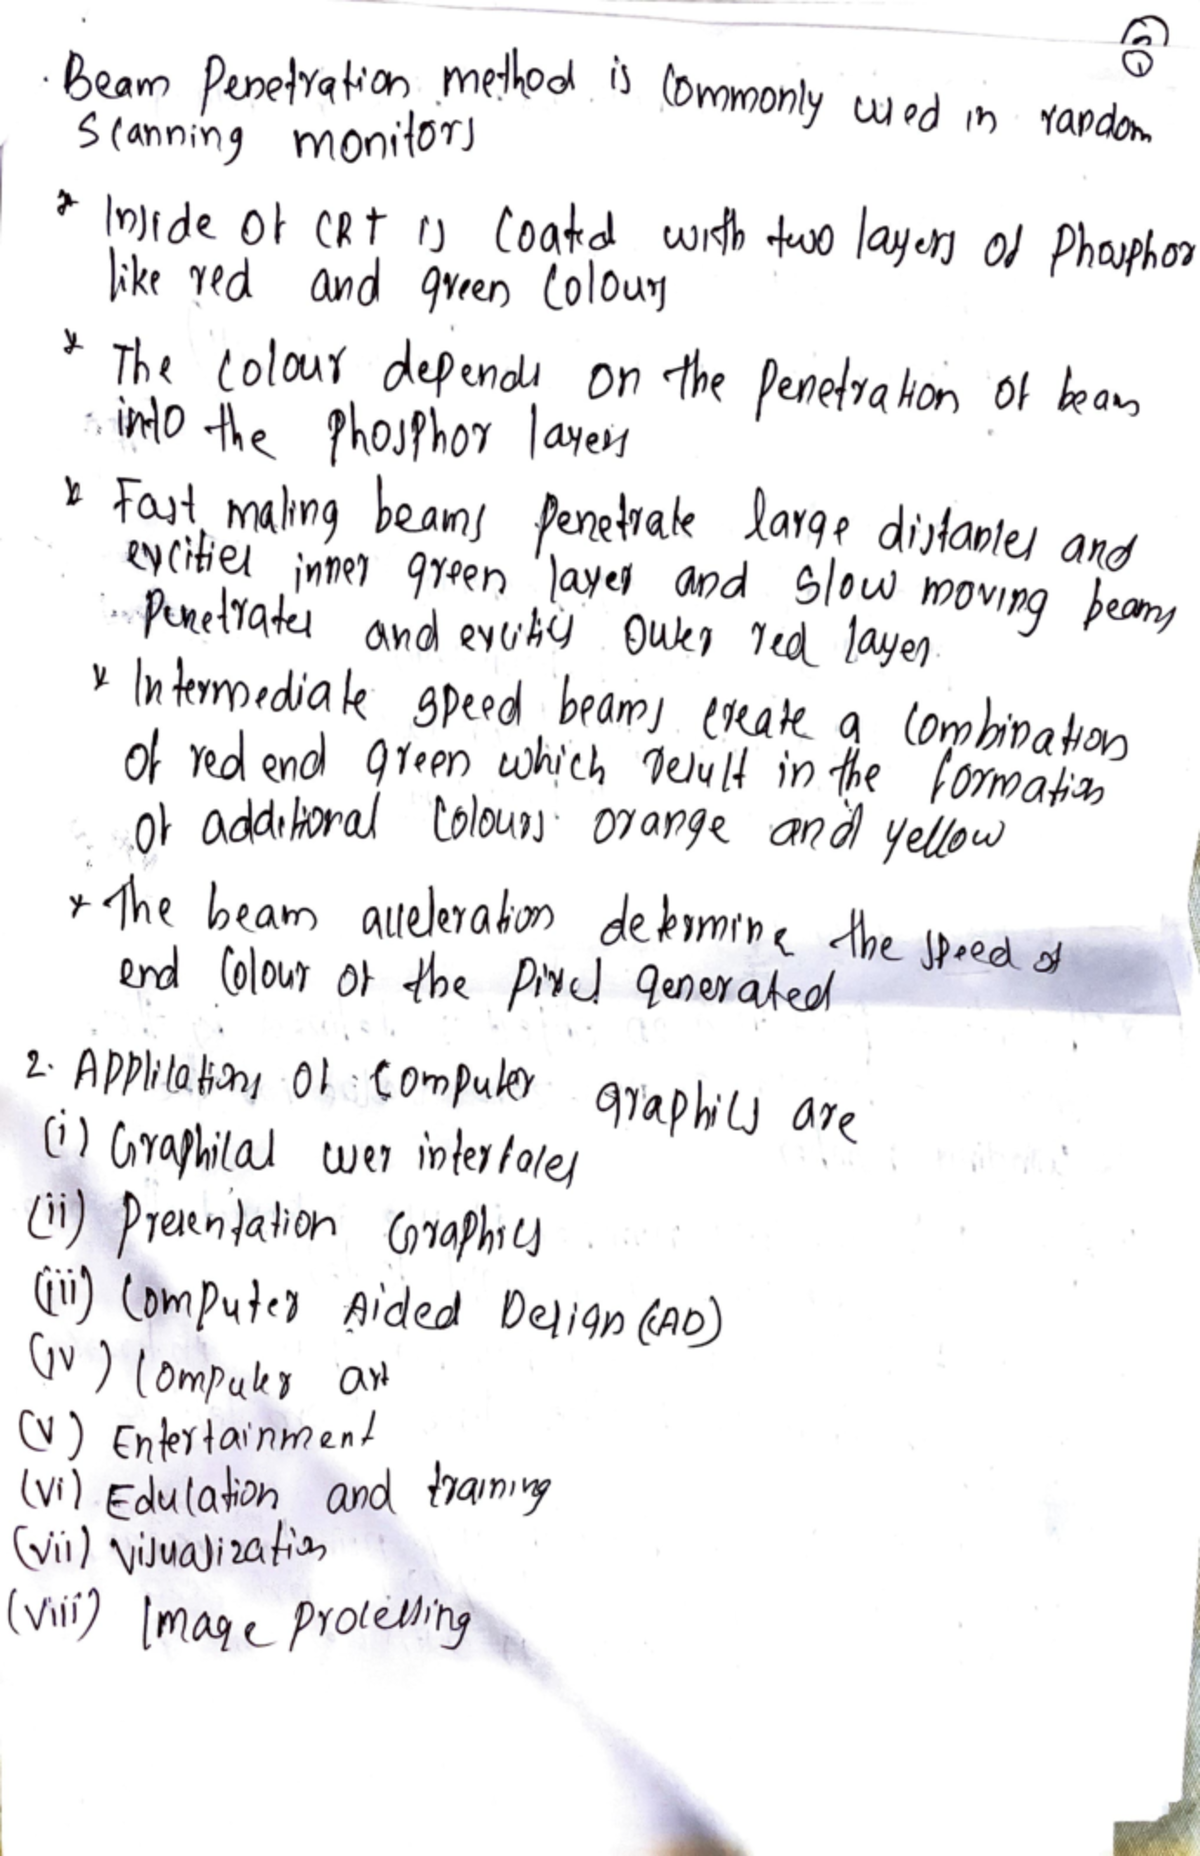 . Beam Penetration method is Commonly used in random
Scanning monitors
* Inside of CRT is Coated with two layers of Phosphor
like red and green Colours
* The Colour depends on the Penetration of beam
into the Phosphor layers
* Fast making beams Penetrate large distances and
excities inner green layer and Slow moving beams
Penetrates and excitis outer red layer.
* Intermediate speed beams create a Combination
of red end green which result in the formation
of additional Colours orange and yellow
* The beam acceleration determine the speed of
end Colour of the Pixel generated
2. Applications of Computer graphics are
(i) Graphical user interfaces
(ii) Presentation Graphics
(iii) Computer Aided Design (CAD)
(iv) Computer art
(v) Entertainment
(vi) Education and training
(vii) Visualization
(viii) Image Processing